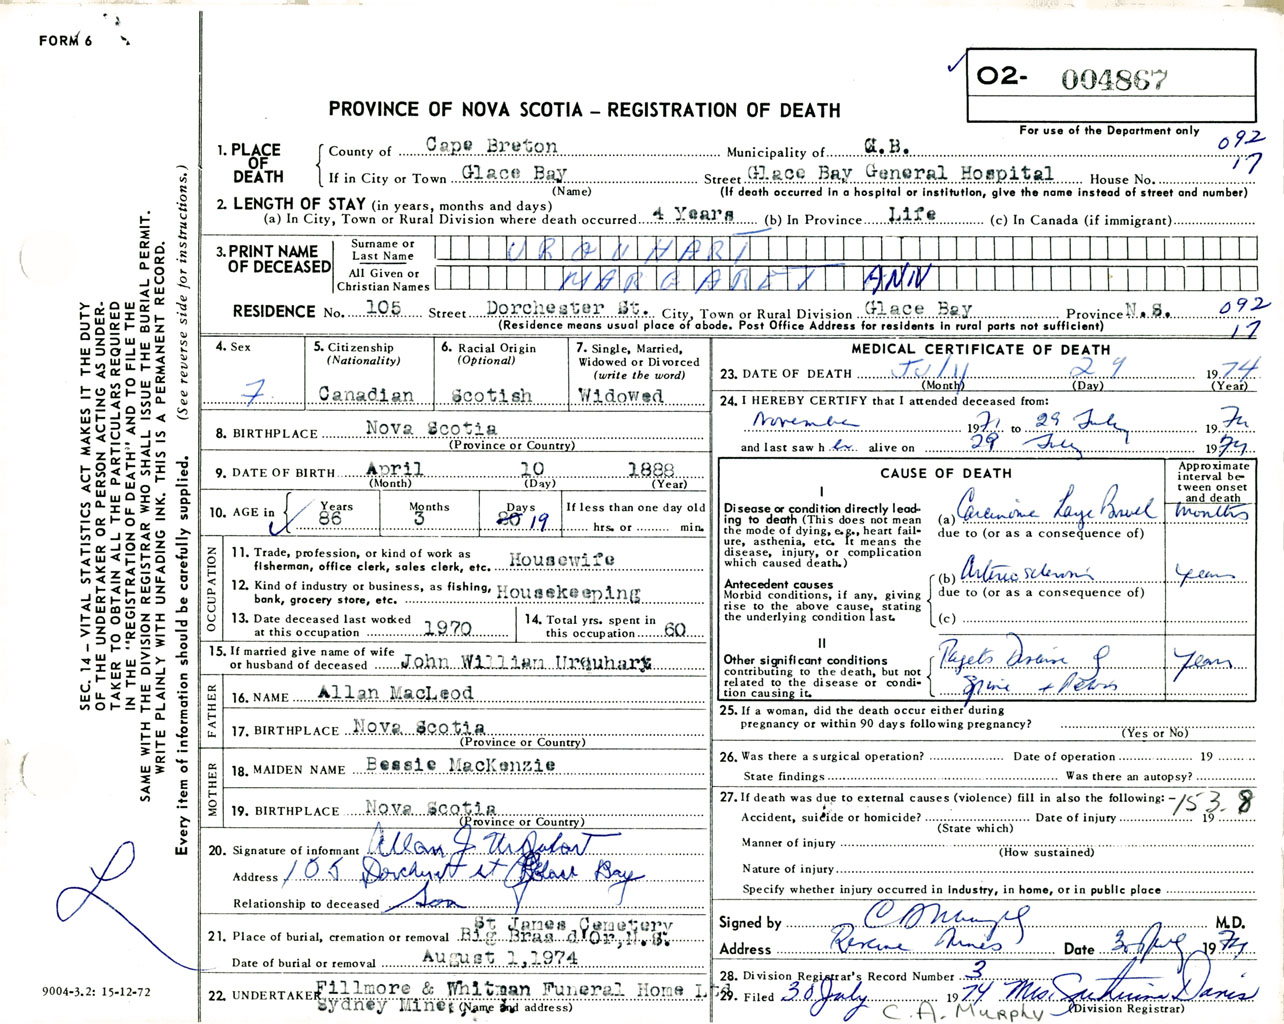 FORM 6
02- 004867
PROVINCE OF NOVA SCOTIA – REGISTRATION OF DEATH
For use of the Department only
092
17
1. PLACE OF DEATH
County of Cape Breton Municipality of G.B.
If in City or Town Glace Bay Street Glace Bay General Hospital House No.
(Name) (If death occurred in a hospital or institution, give name instead of street and number)
2. LENGTH OF STAY (in years, months and days)
(a) In City, Town or Rural Division where death occurred 4 Years (b) In Province Life (c) In Canada (if immigrant)
3. PRINT NAME OF DECEASED
Surname or Last Name URQUHART
All Given or Christian Names MARGARET ANN
RESIDENCE No. 105 Street Dorchester St. City, Town or Rural Division Glace Bay Province N.S.
(Residence means usual place of abode. Post Office Address for residents in rural parts not sufficient)
092
17
SEC. 14 – VITAL STATISTICS ACT MAKES IT THE DUTY
OF THE UNDERTAKER OR PERSON ACTING AS UNDER-
TAKER TO OBTAIN ALL THE PARTICULARS REQUIRED
IN THE "REGISTRATION OF DEATH" AND TO FILE THE
SAME WITH THE DIVISION REGISTRAR WHO SHALL ISSUE THE BURIAL PERMIT.
WRITE PLAINLY WITH UNFADING INK. THIS IS A PERMANENT RECORD.
Every item of information should be carefully supplied. (See reverse side for instructions.)
4. Sex
F
5. Citizenship
(Nationality)
Canadian
6. Racial Origin
(Optional)
Scotish
7. Single, Married,
Widowed or Divorced
(write the word)
Widowed
8. BIRTHPLACE Nova Scotia
(Province or Country)
9. DATE OF BIRTH April 10 1888
(Month) (Day) (Year)
10. AGE in
Years Months Days If less than one day old
86 3 20 19 hrs. or min.
OCCUPATION
11. Trade, profession, or kind of work as
fisherman, office clerk, sales clerk, etc. Housewife
12. Kind of industry or business, as fishing,
bank, grocery store, etc. Housekeeping
13. Date deceased last worked
at this occupation 1970
14. Total yrs. spent in
this occupation 60
15. If married give name of wife
or husband of deceased John Willian Urquhart
FATHER
16. NAME Allan MacLeod
17. BIRTHPLACE Nova Scotia
(Province or Country)
MOTHER
18. MAIDEN NAME Bessie MacKenzie
19. BIRTHPLACE Nova Scotia
(Province or Country)
20. Signature of informant Allan J Urquhart
Address 105 Dorchest st Glace Bay
Relationship to deceased Son
21. Place of burial, cremation or removal St Janes Cemetery
Big Bras d'Or, N.S.
Date of burial or removal August 1,1974
22. UNDERTAKER Fillmore & Whitman Funeral Home Ltd
Sydney Mines (Name and address)
9004-3.2: 15-12-72
MEDICAL CERTIFICATE OF DEATH
23. DATE OF DEATH July 29 1974
(Month) (Day) (Year)
24. I HEREBY CERTIFY that I attended deceased from:
November 1971 to 29 July 1974
and last saw her alive on 29 July 1974
CAUSE OF DEATH
Approximate
interval be-
tween onset
and death
I
Disease or condition directly lead-
ing to death (This does not mean
the mode of dying, e.g., heart fail-
ure, asthenia, etc. It means the
disease, injury, or complication
which caused death.)
(a) Carcinoma Large Bowel months
due to (or as a consequence of)
Antecedent causes
Morbid conditions, if any, giving
rise to the above cause, stating
the underlying condition last.
(b) Arteriosclerosis years
due to (or as a consequence of)
(c)
II
Other significant conditions
contributing to the death, but not
related to the disease or condi-
tion causing it.
Pagets Disease of
Spine + Pelvis
years
25. If a woman, did the death occur either during
pregnancy or within 90 days following pregnancy?
(Yes or No)
26. Was there a surgical operation? Date of operation 19
State findings Was there an autopsy?
27. If death was due to external causes (violence) fill in also the following: -153.8
Accident, suicide or homicide? Date of injury 19
(State which)
Manner of injury
(How sustained)
Nature of injury
Specify whether injury occurred in industry, in home, or in public place
Signed by M.D.
Address Reserve Mines Date 30 July 1974
28. Division Registrar's Record Number 3
29. Filed 30 July 1974 Mrs. Davis
(Division Registrar)
C.A. MURPHY